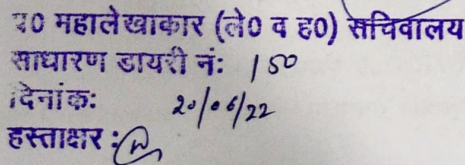 प्र0 महालेखाकार (ले0 व ह0) सचिवालय
साधारण डायरी नं: 150
दिनांक: 20/06/22
हस्ताक्षर :